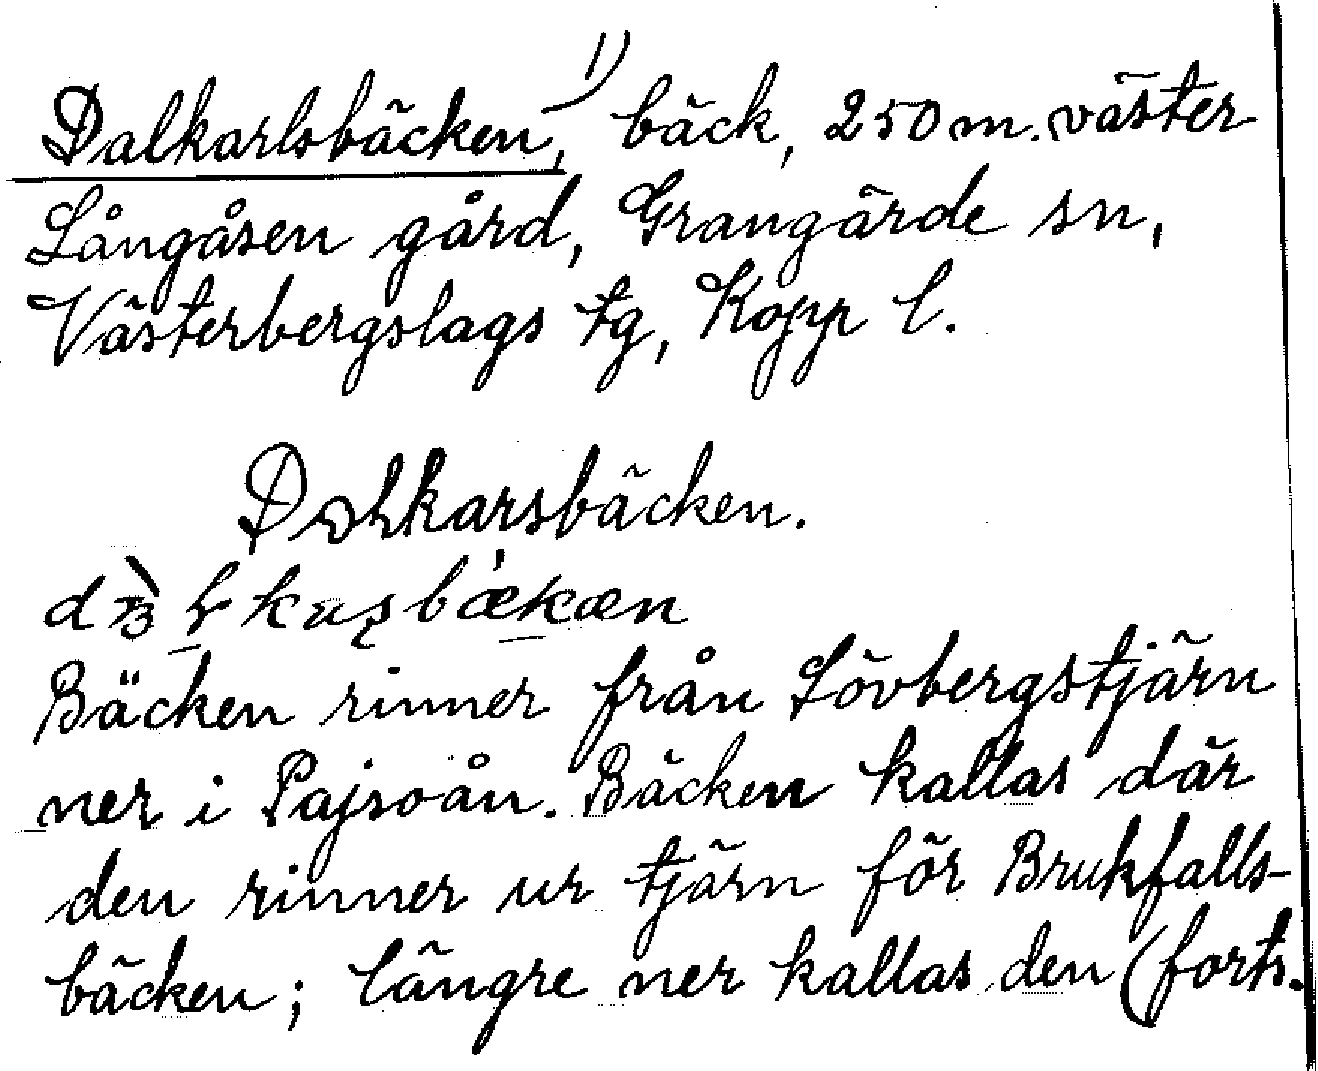 Dalkarlsbäcken, 1) bäck, 250 m. väster
Långåsen gård, Grangärde sn,
Västerbergslags tg, Kopp l.
Dalkarsbäcken.
Bäcken rinner från Lövbergstjärn
ner i Pajsoån. Bäcken kallas där
den rinner ur tjärn för Brukfalls-
bäcken; längre ner kallas den (forts.